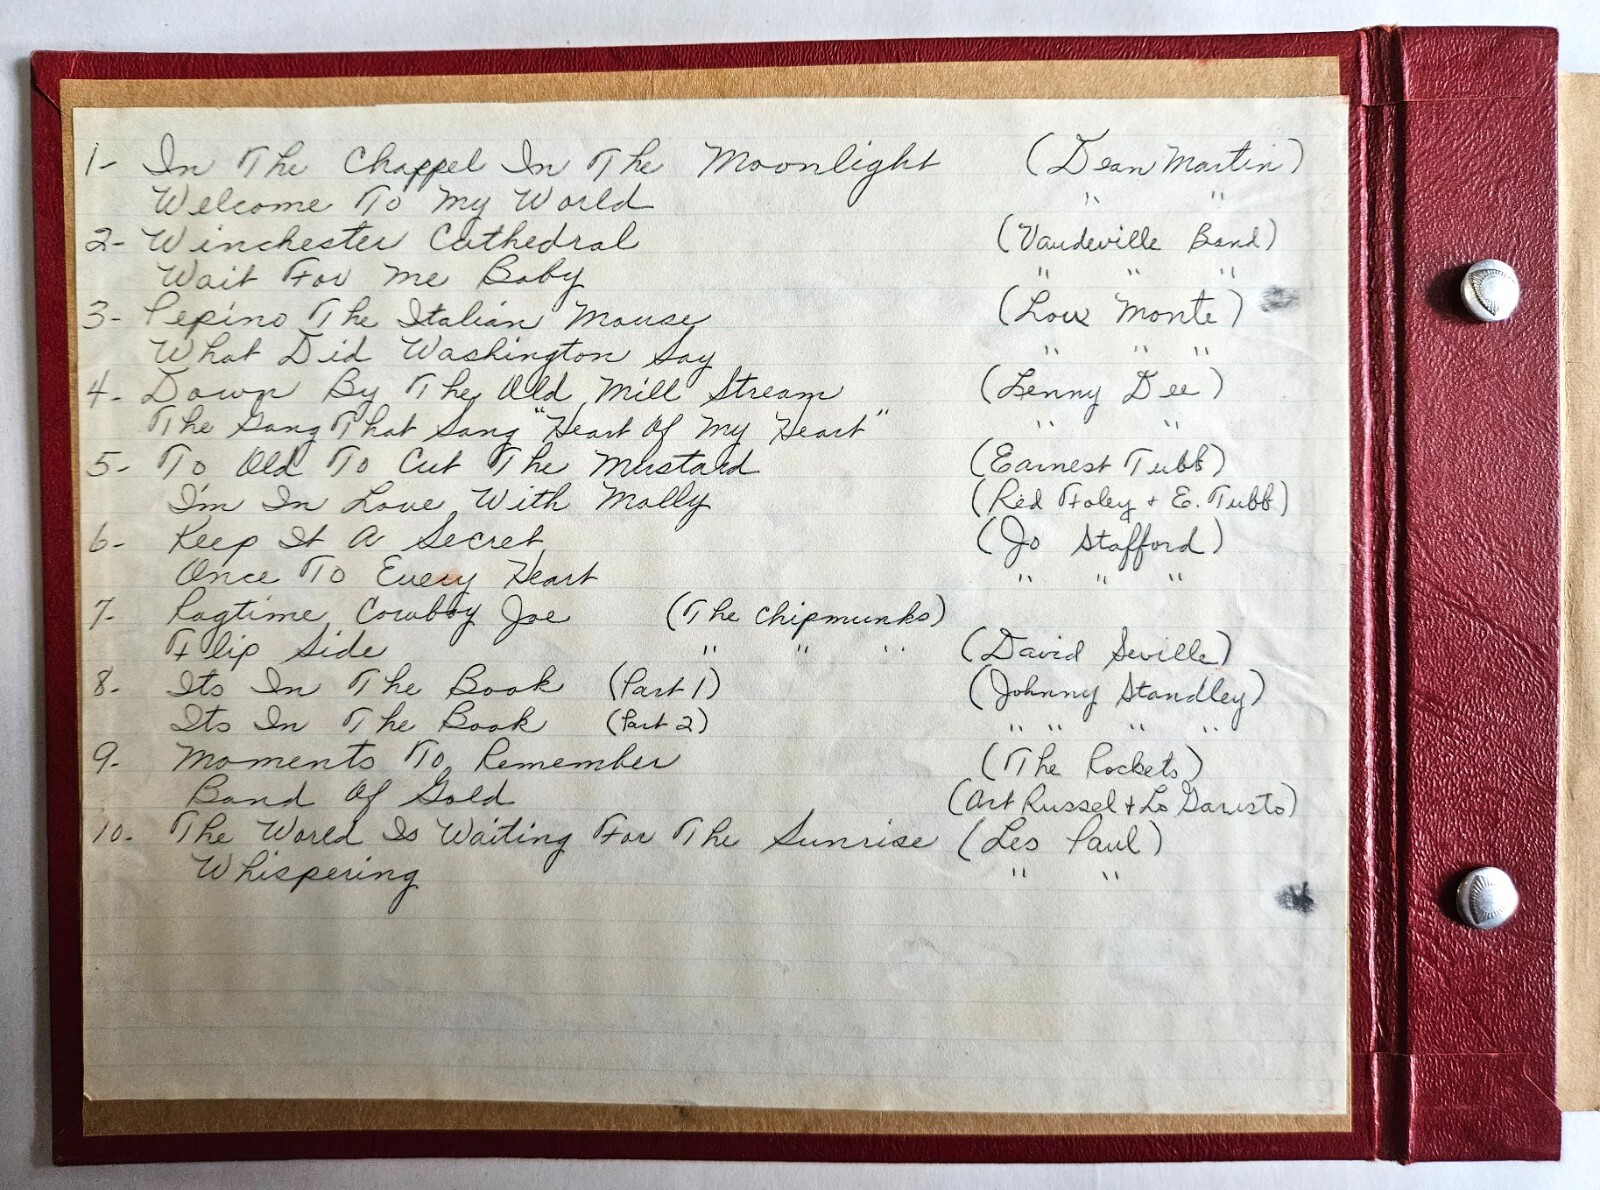 1- In The Chappel In The Moonlight (Dean Martin)
Welcome To My World " "
2- Winchester Cathedral (Vaudeville Band)
Wait For Me Baby " " "
3- Pepino The Italian Mouse (Low Monte)
What Did Washington Say " " "
4- Down By The Old Mill Stream (Lenny Dee)
The Gang That Sang "Heart Of My Heart" " "
5- To Old To Cut The Mustard (Earnest Tubb)
I'm In Love With Molly (Red Foley + E. Tubb)
6- Keep It A Secret (Jo Stafford)
Once To Every Heart " " "
7- Ragtime Cowboy Joe (The Chipmunks)
Flip Side " " " (David Seville)
8- Its In The Book (Part 1) (Johnny Standley)
Its In The Book (Part 2) " " " "
9- Moments To Remember (The Rockets)
Band Of Gold (Art Russel + Lo Garisto)
10- The World Is Waiting For The Sunrise (Les Paul)
Whispering " "